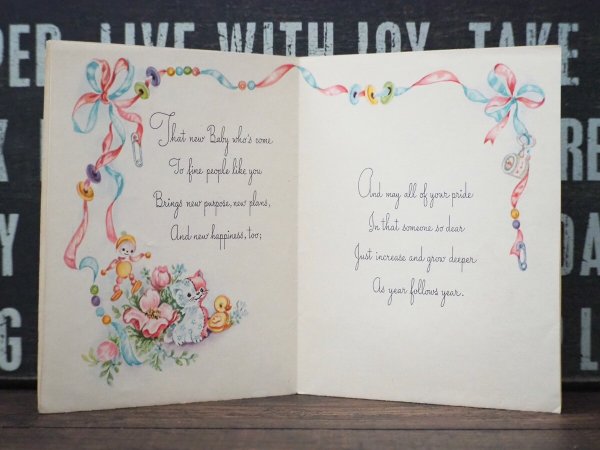 PER LIVE WITH JOY, TAKE
That new Baby who's come
To fine people like you
Brings new purpose, new plans,
And new happiness, too;
And may all of your pride
In that someone so dear
Just increase and grow deeper
As year follows year.